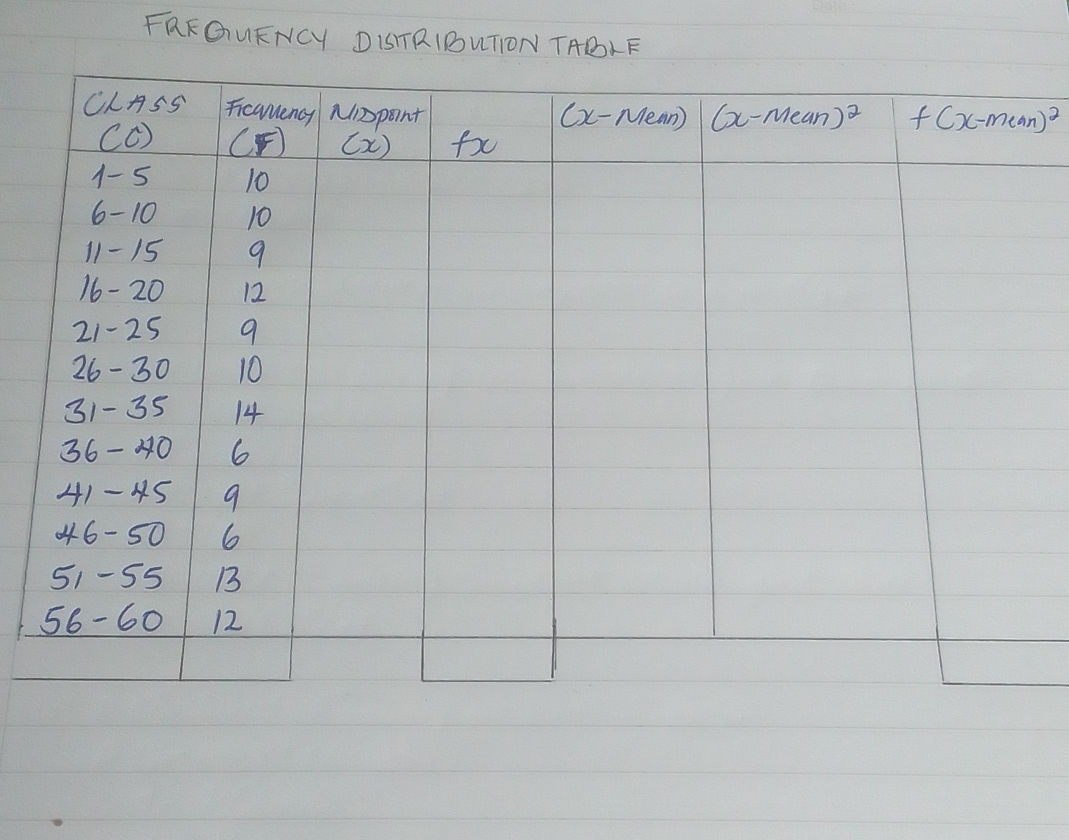 FREQUENCY DISTRIBUTION TABLE
CLASS Frequency Midpoint (x-Mean) (x-Mean)² f(x-mean)²
(C) (F) (x) fx
1-5 10
6-10 10
11-15 9
16-20 12
21-25 9
26-30 10
31-35 14
36-40 6
41-45 9
46-50 6
51-55 13
56-60 12